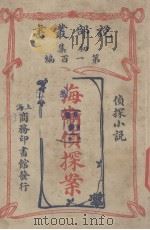 說部叢書
第一集
百編
偵探小說
海衛偵探案
上海商務印書館發行